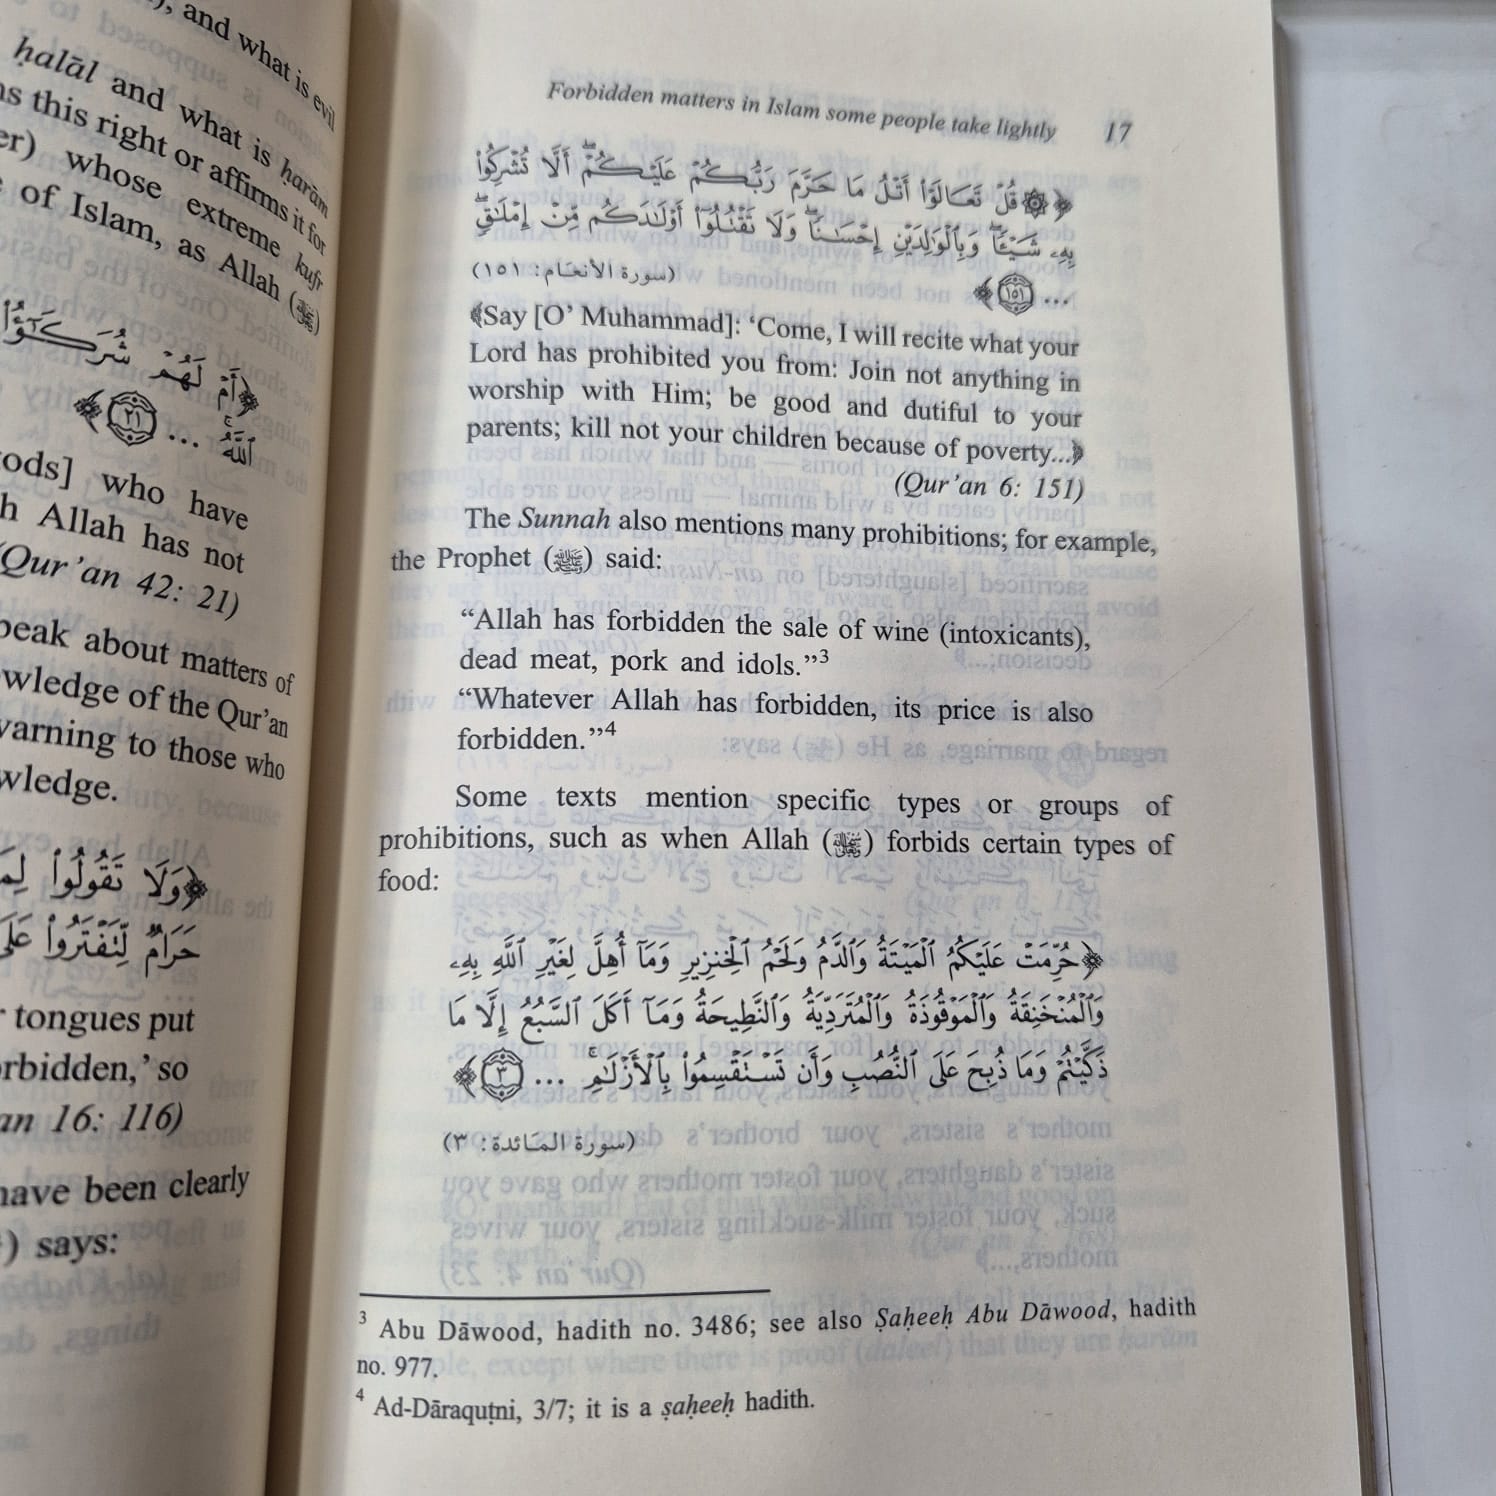 ), and what is evil
ḥalāl and what is ḥarām
this right or affirms it for
whose extreme kufr
of Islam, as Allah (ﷻ)
﴿أَمْ لَهُمْ شُرَكَـٰٓؤُا۟
ٱللَّهُ ... ﴿٢١﴾﴾
who have
Allah has not
(Qur’an 42: 21)
about matters of
of the Qur’an
to those who
﴿وَلَا تَقُولُوا۟
حَرَامٌ لِّتَفْتَرُوا۟
tongues put
so
16: 116)
have been clearly
) says:
Forbidden matters in Islam some people take lightly 17
﴿۞ قُلْ تَعَالَوْا۟ أَتْلُ مَا حَرَّمَ رَبُّكُمْ عَلَيْكُمْ ۖ أَلَّا تُشْرِكُوا۟
بِهِۦ شَيْـًٔا ۖ وَبِٱلْوَٰلِدَيْنِ إِحْسَـٰنًا ۖ وَلَا تَقْتُلُوٓا۟ أَوْلَـٰدَكُم مِّنْ إِمْلَـٰقٍ ۖ
... ﴿١٥١﴾﴾ (سورة الأنعـام: ١٥١)
﴾Say [O’ Muhammad]: ‘Come, I will recite what your
Lord has prohibited you from: Join not anything in
worship with Him; be good and dutiful to your
parents; kill not your children because of poverty...﴿
(Qur’an 6: 151)
The Sunnah also mentions many prohibitions; for example,
the Prophet (ﷺ) said:
“Allah has forbidden the sale of wine (intoxicants),
dead meat, pork and idols.”³
“Whatever Allah has forbidden, its price is also
forbidden.”⁴
Some texts mention specific types or groups of
prohibitions, such as when Allah (ﷻ) forbids certain types of
food:
﴿حُرِّمَتْ عَلَيْكُمُ ٱلْمَيْتَةُ وَٱلدَّمُ وَلَحْمُ ٱلْخِنزِيرِ وَمَآ أُهِلَّ لِغَيْرِ ٱللَّهِ بِهِۦ
وَٱلْمُنْخَنِقَةُ وَٱلْمَوْقُوذَةُ وَٱلْمُتَرَدِّيَةُ وَٱلنَّطِيحَةُ وَمَآ أَكَلَ ٱلسَّبُعُ إِلَّا مَا
ذَكَّيْتُمْ وَمَا ذُبِحَ عَلَى ٱلنُّصُبِ وَأَن تَسْتَقْسِمُوا۟ بِٱلْأَزْلَـٰمِ ۚ ... ﴿٣﴾﴾
(سورة المـائدة: ٣)
³ Abu Dāwood, hadith no. 3486; see also Ṣaḥeeḥ Abu Dāwood, hadith
no. 977.
⁴ Ad-Dāraquṭni, 3/7; it is a ṣaḥeeḥ hadith.